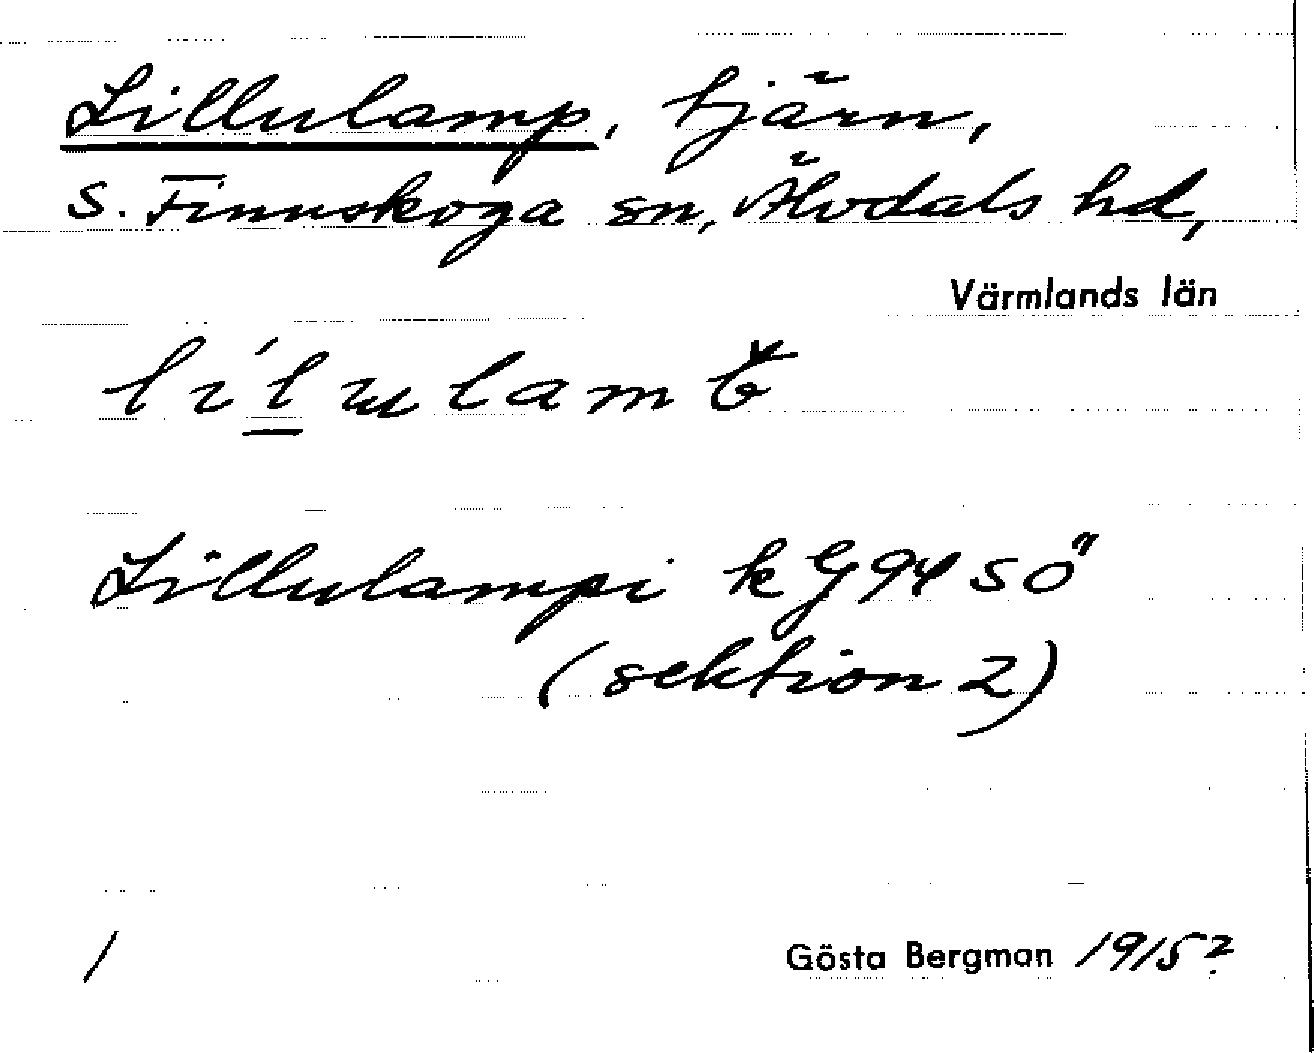 Lillulamp, tjärn,
S. Finnskoga sn, Älvdals hd,
Värmlands län
Lillulampi kG94 SÖ
(sektion 2)
/ Gösta Bergman 1915?